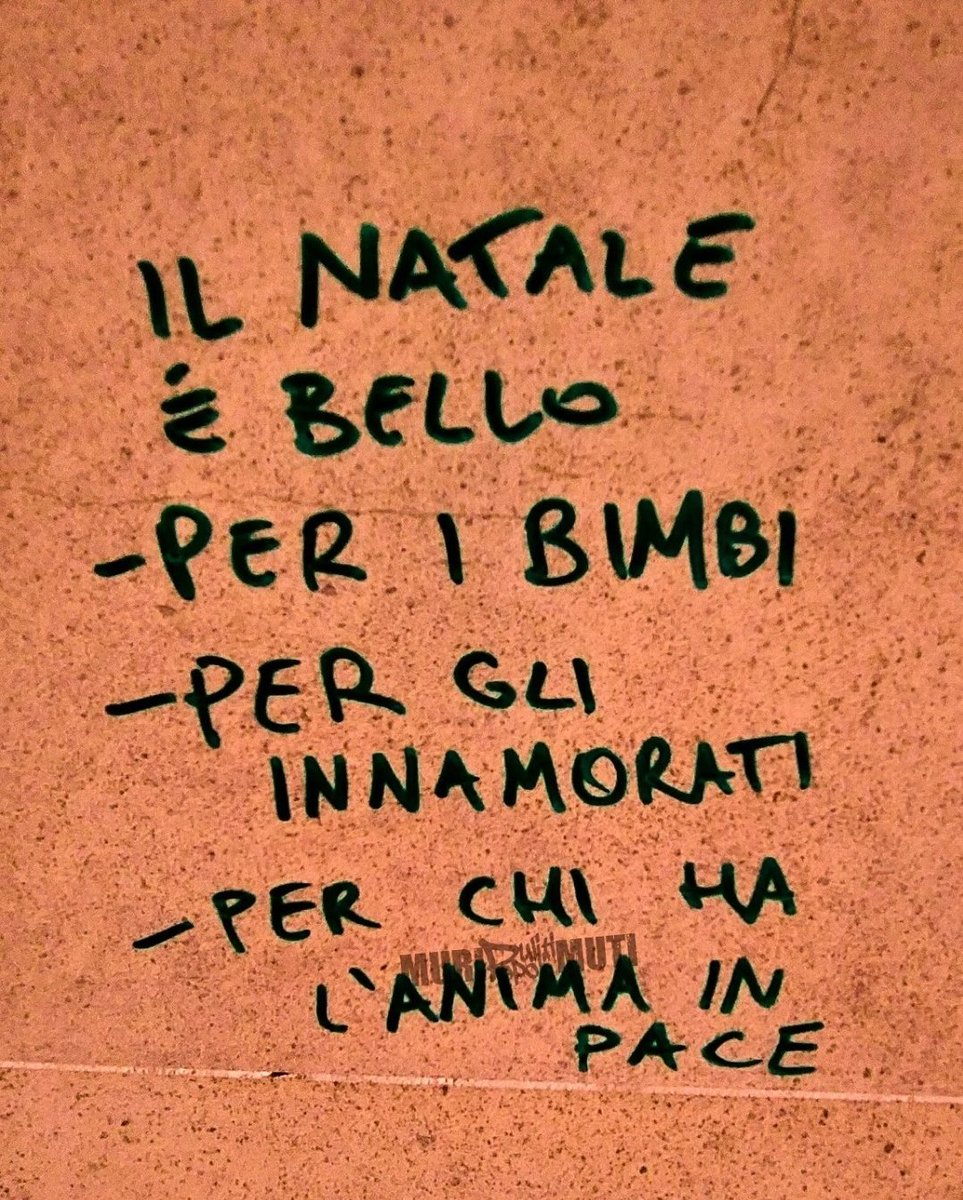 IL NATALE
É BELLO
-PER I BIMBI
-PER GLI
INNAMORATI
-PER CHI HA
MURI MUTI
L'ANIMA IN
PACE